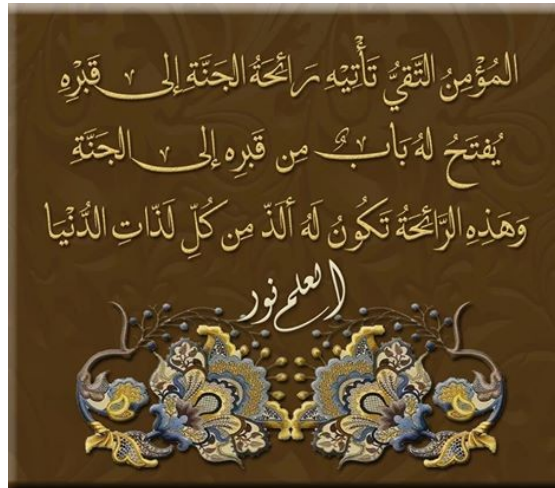 المُؤْمِنُ التَّقِيُّ تَأْتِيْهِ رَائِحَةُ الجَنَّةِ إلى قَبْرِهِ
يُفتَحُ لهُ بَابٌ مِن قَبْرِه إلى الجَنَّةِ
وَهَذِهِ الرَّائِحَةُ تَكُونُ لَهُ ألَذّ مِن كُلِّ لَذّاتِ الدُّنْيَا
العلم نور